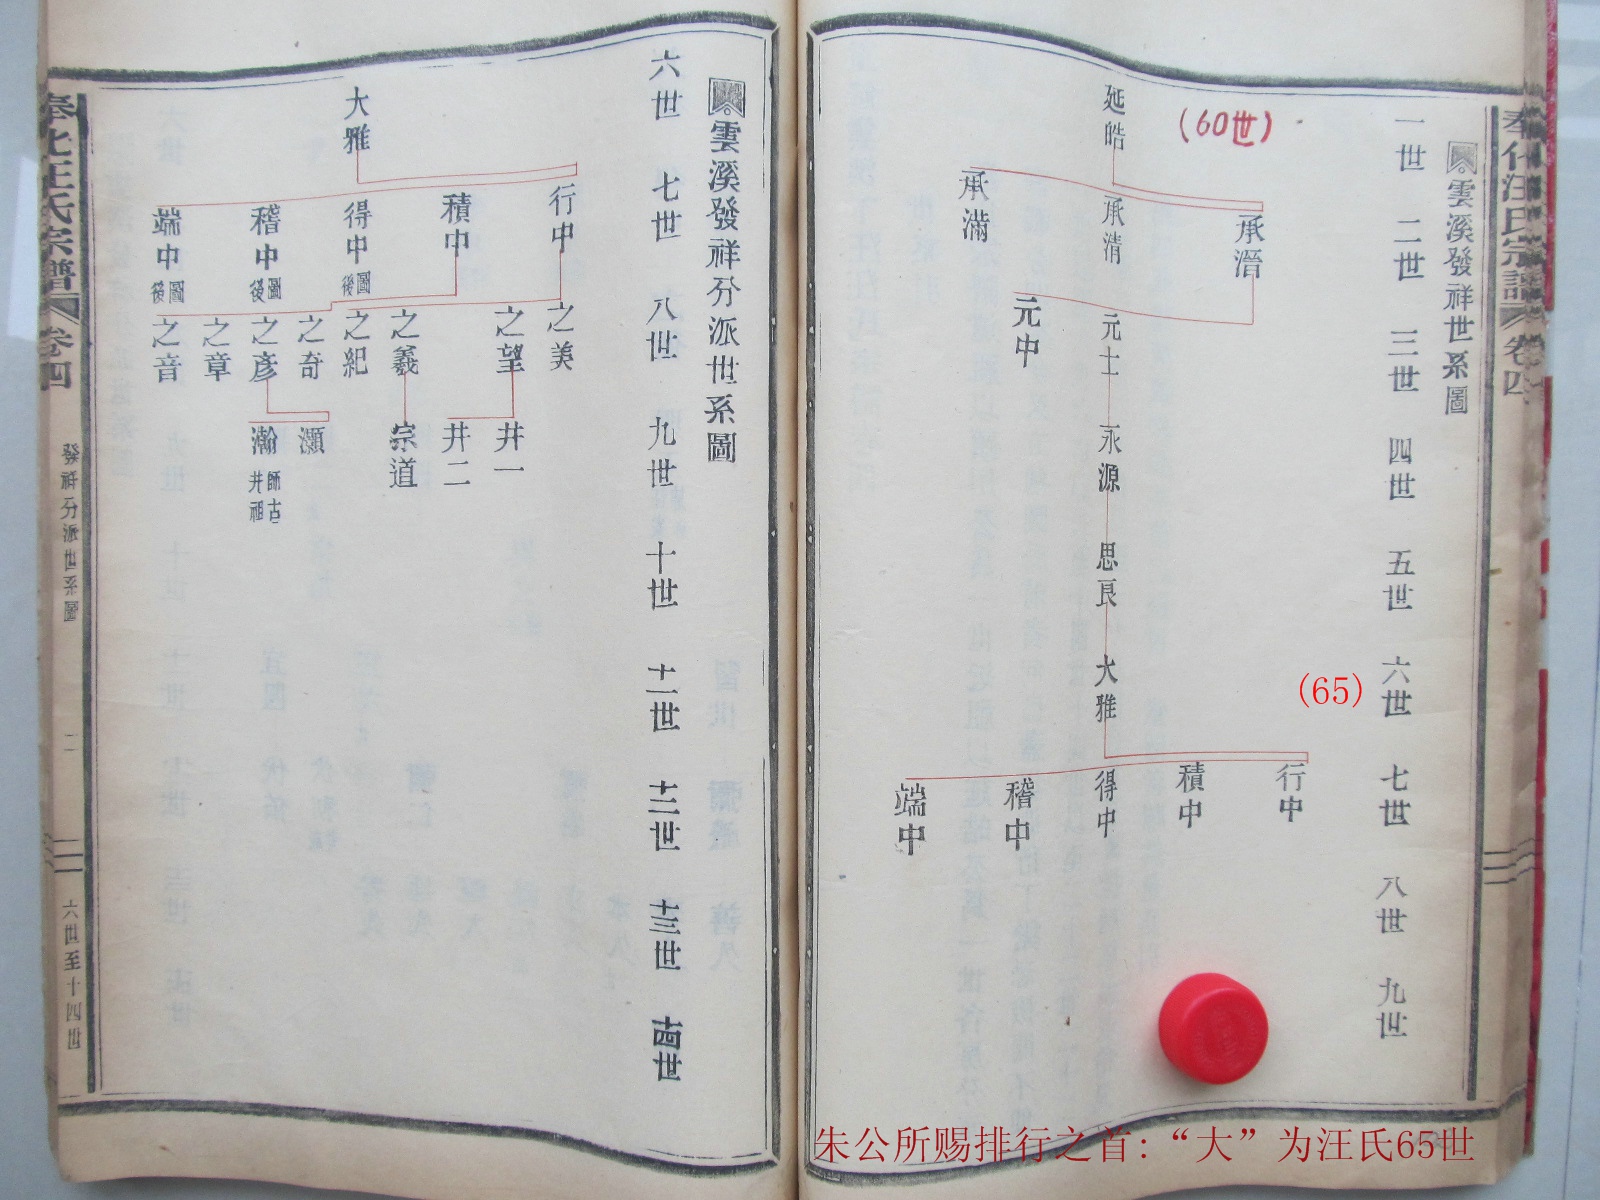 奉化汪氏宗譜 卷四
雲溪發祥世系圖
一世 二世 三世 四世 五世 六世 七世 八世 九世
(65)
(60世)
延皓
承濳
承清
承滿
元士
元中
永源
思艮
大雅
行中
積中
得中
稽中
端中
雲溪發祥分派世系圖
六世 七世 八世 九世 十世 十一世 十二世 十三世 十四世
大雅
行中
積中
得中 圖後
稽中 圖後
端中 圖後
之美
之望
之羲
之紀
之奇
之彥
之章
之音
井一
井二
宗道
灝
瀚 師古井祖
奉化汪氏宗譜 卷四
發祥分派世系圖
二
六世至十四世
朱公所赐排行之首:“大”为汪氏65世